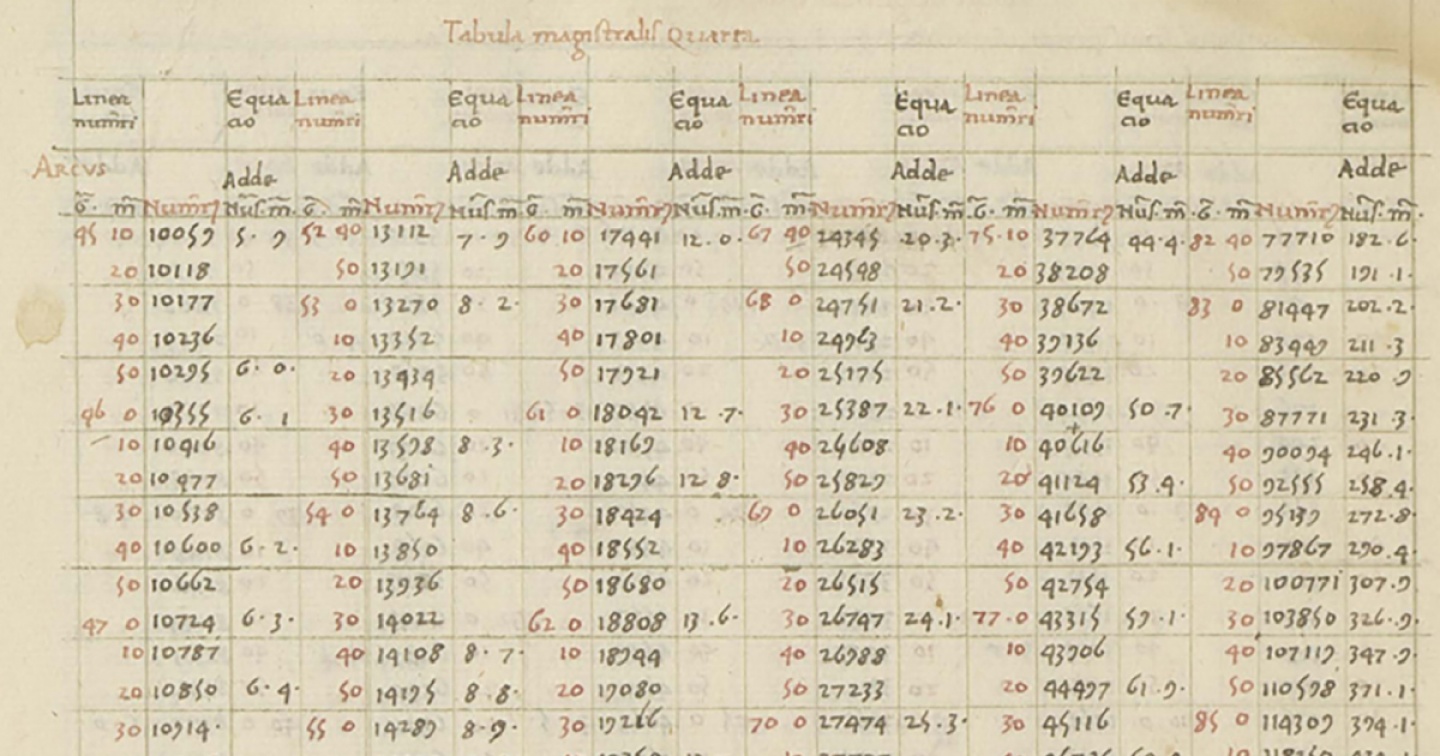 Tabula magistralis Quarta
Linea Equa Linea Equa Linea Equa Linea Equa Linea Equa Linea Equa
num̄ri cio num̄ri cio num̄ri cio num̄ri cio num̄ri cio num̄ri cio
Arcus Adde Adde Adde Adde Adde Adde
G̃. m̃ Num̃rꝫ Nũs. m̃ G̃. m̃ Num̃rꝫ Nũs. m̃ G̃. m̃ Num̃rꝫ Nũs. m̃ G̃. m̃ Num̃rꝫ Nũs. m̃ G̃. m̃ Num̃rꝫ Nũs. m̃ G̃. m̃ Num̃rꝫ Nũs. m̃
45 10 10059 5. 9 52 40 13112 7. 9 60 10 17441 12. 0. 67 40 24345 20.3. 75.10 37764 44.4. 82 40 77710 182.6.
20 10118 50 13191 20 17561 50 24548 20 38208 50 79535 191.1.
30 10177 53 0 13270 8. 2. 30 17681 68 0 24751 21.2. 30 38672 83 0 81447 202.2.
40 10236 10 13352 40 17801 10 24963 40 39136 10 83449 211.3
50 10295 6. 0. 20 13434 50 17921 20 25175 50 39622 20 85562 220.9
46 0 10355 6. 1 30 13516 61 0 18042 12.7. 30 25387 22.1. 76 0 40109 50.7. 30 87771 231.3.
10 10416 40 13598 8.3. 10 18169 40 26608 10 40616 40 90094 246.1.
20 10477 50 13681 20 18296 12 8. 50 25829 20 41124 53.4. 50 92555 258.4.
30 10538 54 0 13764 8.6. 30 18424 69 0 26051 23.2. 30 41658 84 0 95139 272.8.
40 10600 6. 2. 10 13850 40 18552 10 26283 40 42193 56.1. 10 97867 290.4.
50 10662 20 13936 50 18680 20 26515 50 42754 20 100771 307.9
47 0 10724 6.3. 30 14022 62 0 18808 13.6. 30 26747 24.1. 77.0 43315 59.1. 30 103850 326.9.
10 10787 40 14108 8.7. 10 18944 40 26988 10 43906 40 107119 347.9.
20 10850 6.4. 50 14195 8 8. 20 19080 50 27233 20 44497 61.9. 50 110598 371.1.
30 10914. 55 0 14289 8.9. 30 19216 70 0 27474 25.3. 30 45116 85 0 114309 394.1.